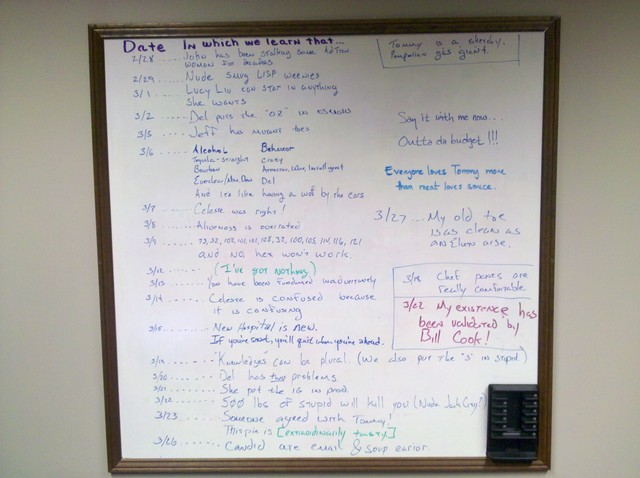 Date In which we learn that...
2/28 John has been stalking some
woman for decades
2/29 Nude smug LISP weenies
3/1 Lucy Liu can star in anything
she wants
3/2 Del puts the "oz" in
3/5 Jeff has mutant toes
3/6 Alcohol Behavior
Tequila - straight Crazy
Bourbon
Del
And it's like having a wolf by the ears
3/7 Celeste was right!
3/8 is overrated
3/9
and no, hex won't work.
3/12 (I've got nothing)
3/13 You have been functured inadvertently
3/14 Celeste is confused because
it is confusing
3/15 New Hospital is new.
If you're smart, you'll quit when you're ahead.
"Knowledge" can be plural. (We also put the "s" in stupid)
3/20 Del has two problems
3/21 She put the is in prod.
3/22 500 lbs of stupid will kill you
3/23 Someone agreed with Tommy!
This pie is [extraordinarily toasty]
3/26 Candid are email & soup
Tommy is a sketchy,
gas giant.
Say it with me now...
Outta da budget!!!
Everyone loves Tommy more
than meat loves sauce.
3/27 ...My old toe
is as clean as
an Elven arse.
Chef pants are
really comfortable
3/22 My existence has
been validated by
Bill Cook!